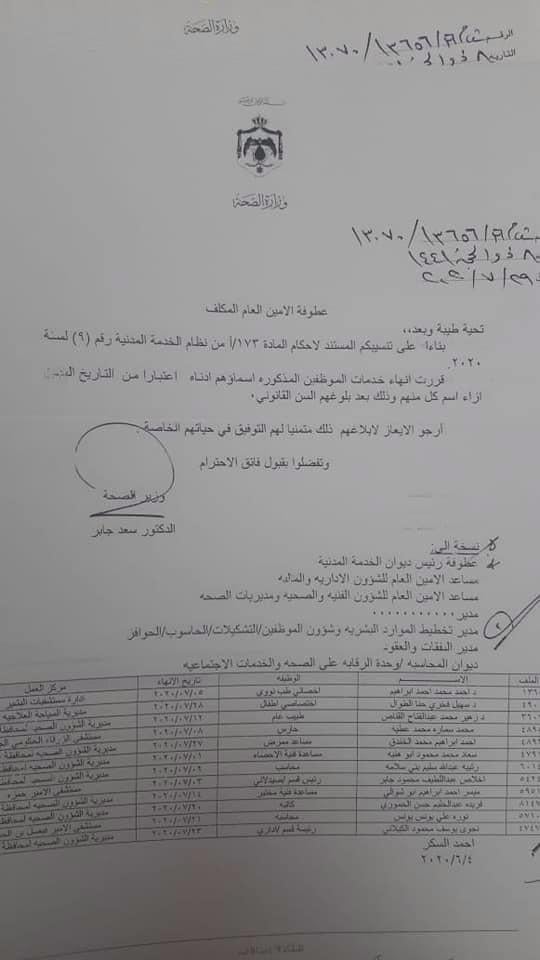 وزارة الصحة
الرقم ش م/٢١/١٣٦٥٦/١٣٠٧٠
التاريخ ٨ ذو الحجة
وزارة الصحة
١٣٠٧٠/١٣٦٥٦/٢١/
٨ ذو الحجة ١٤٤١
٢٠٢٠/٧/٢٩
عطوفة الامين العام المكلف
تحية طيبة وبعد،،
بناءا على تنسيبكم المستند لاحكام المادة ١٧٣/أ من نظام الخدمة المدنية رقم (٩) لسنة
٢٠٢٠.
قررت انهاء خدمات الموظفين المذكوره اسماؤهم ادناه اعتبارا من التاريخ
ازاء اسم كل منهم وذلك بعد بلوغهم السن القانوني.
أرجو الايعاز لابلاغهم ذلك متمنيا لهم التوفيق في حياتهم الخاصة.
وتفضلوا بقبول فائق الاحترام
وزير الصحة
الدكتور سعد جابر
نسخة الى:
عطوفة رئيس ديوان الخدمة المدنية
مساعد الامين العام للشؤون الاداريه والماليه
مساعد الامين العام للشؤون الفنيه والصحيه ومديريات الصحه
مدير...........
مدير تخطيط الموارد البشريه وشؤون الموظفين/التشكيلات/الحاسوب/الحوافز
مدير النفقات والعقود
ديوان المحاسبه /وحدة الرقابه على الصحه والخدمات الاجتماعيه
الملف الاســـم الوظيفه تاريخ الانهاء مركز العمل
١٣٦ د احمد محمد احمد ابراهيم اخصائي طب نووي ٢٠٢٠/٠٧/٠٥ ادارة مستشفيات البشير
٤٩٠ د سهيل فخري حنا الطوال اختصاصي اطفال ٢٠٢٠/٠٧/٢٨ مديرية السياحة العلاجيه
٣٦٠ د زهير محمد عبدالفتاح القاص طبيب عام ٢٠٢٠/٠٧/١٢ مديرية الشؤون الصحيه لمحافظة
٤٨٩ محمد بصاره محمد عطيه حارس ٢٠٢٠/٠٧/٠٨ مستشفى الزرقاء الحكومي
٤٨٩ احمد ابراهيم محمد الخندق مساعد ممرض ٢٠٢٠/٠٧/٢٧ مديرية الشؤون الصحيه لمحافظة
٤٧٩ سعاد محمد محمود ابو هنيه مساعدة فنية الاحصاء ٢٠٢٠/٠٧/٠١ مديرية الشؤون الصحيه لمحافظة
٦٠١٤ رتيبه عبدالله سليم بني سلامه محاسب ٢٠٢٠/٠٧/٠١ مديرية الشؤون الصحيه لمحافظة
٥٤٢٤ اخلاص عبداللطيف محمود جابر رئيس قسم/صيدلاني ٢٠٢٠/٠٧/٠٣ مديرية الشؤون الصحيه لمحافظة
٥٩٥١ ميسر احمد ابراهيم ابو شوالي مساعدة فنية مختبر ٢٠٢٠/٠٧/١٤ مستشفى الامير حمزه
٨١٤٧ فريده عبدالحليم حسن الحموري كاتبه ٢٠٢٠/٠٧/٢٠ مديرية الشؤون الصحيه لمحافظة
٥٧١٠ نوره علي يونس يونس محاسبه ٢٠٢٠/٠٧/٢١ مستشفى الامير فيصل بن
٤٧٤٧ نجوى يوسف محمود الكيلاني رئيسة قسم/اداري ٢٠٢٠/٠٧/٢٣ مديرية الشؤون الصحيه لمحافظة
احمد السكر
٢٠٢٠/٦/٤